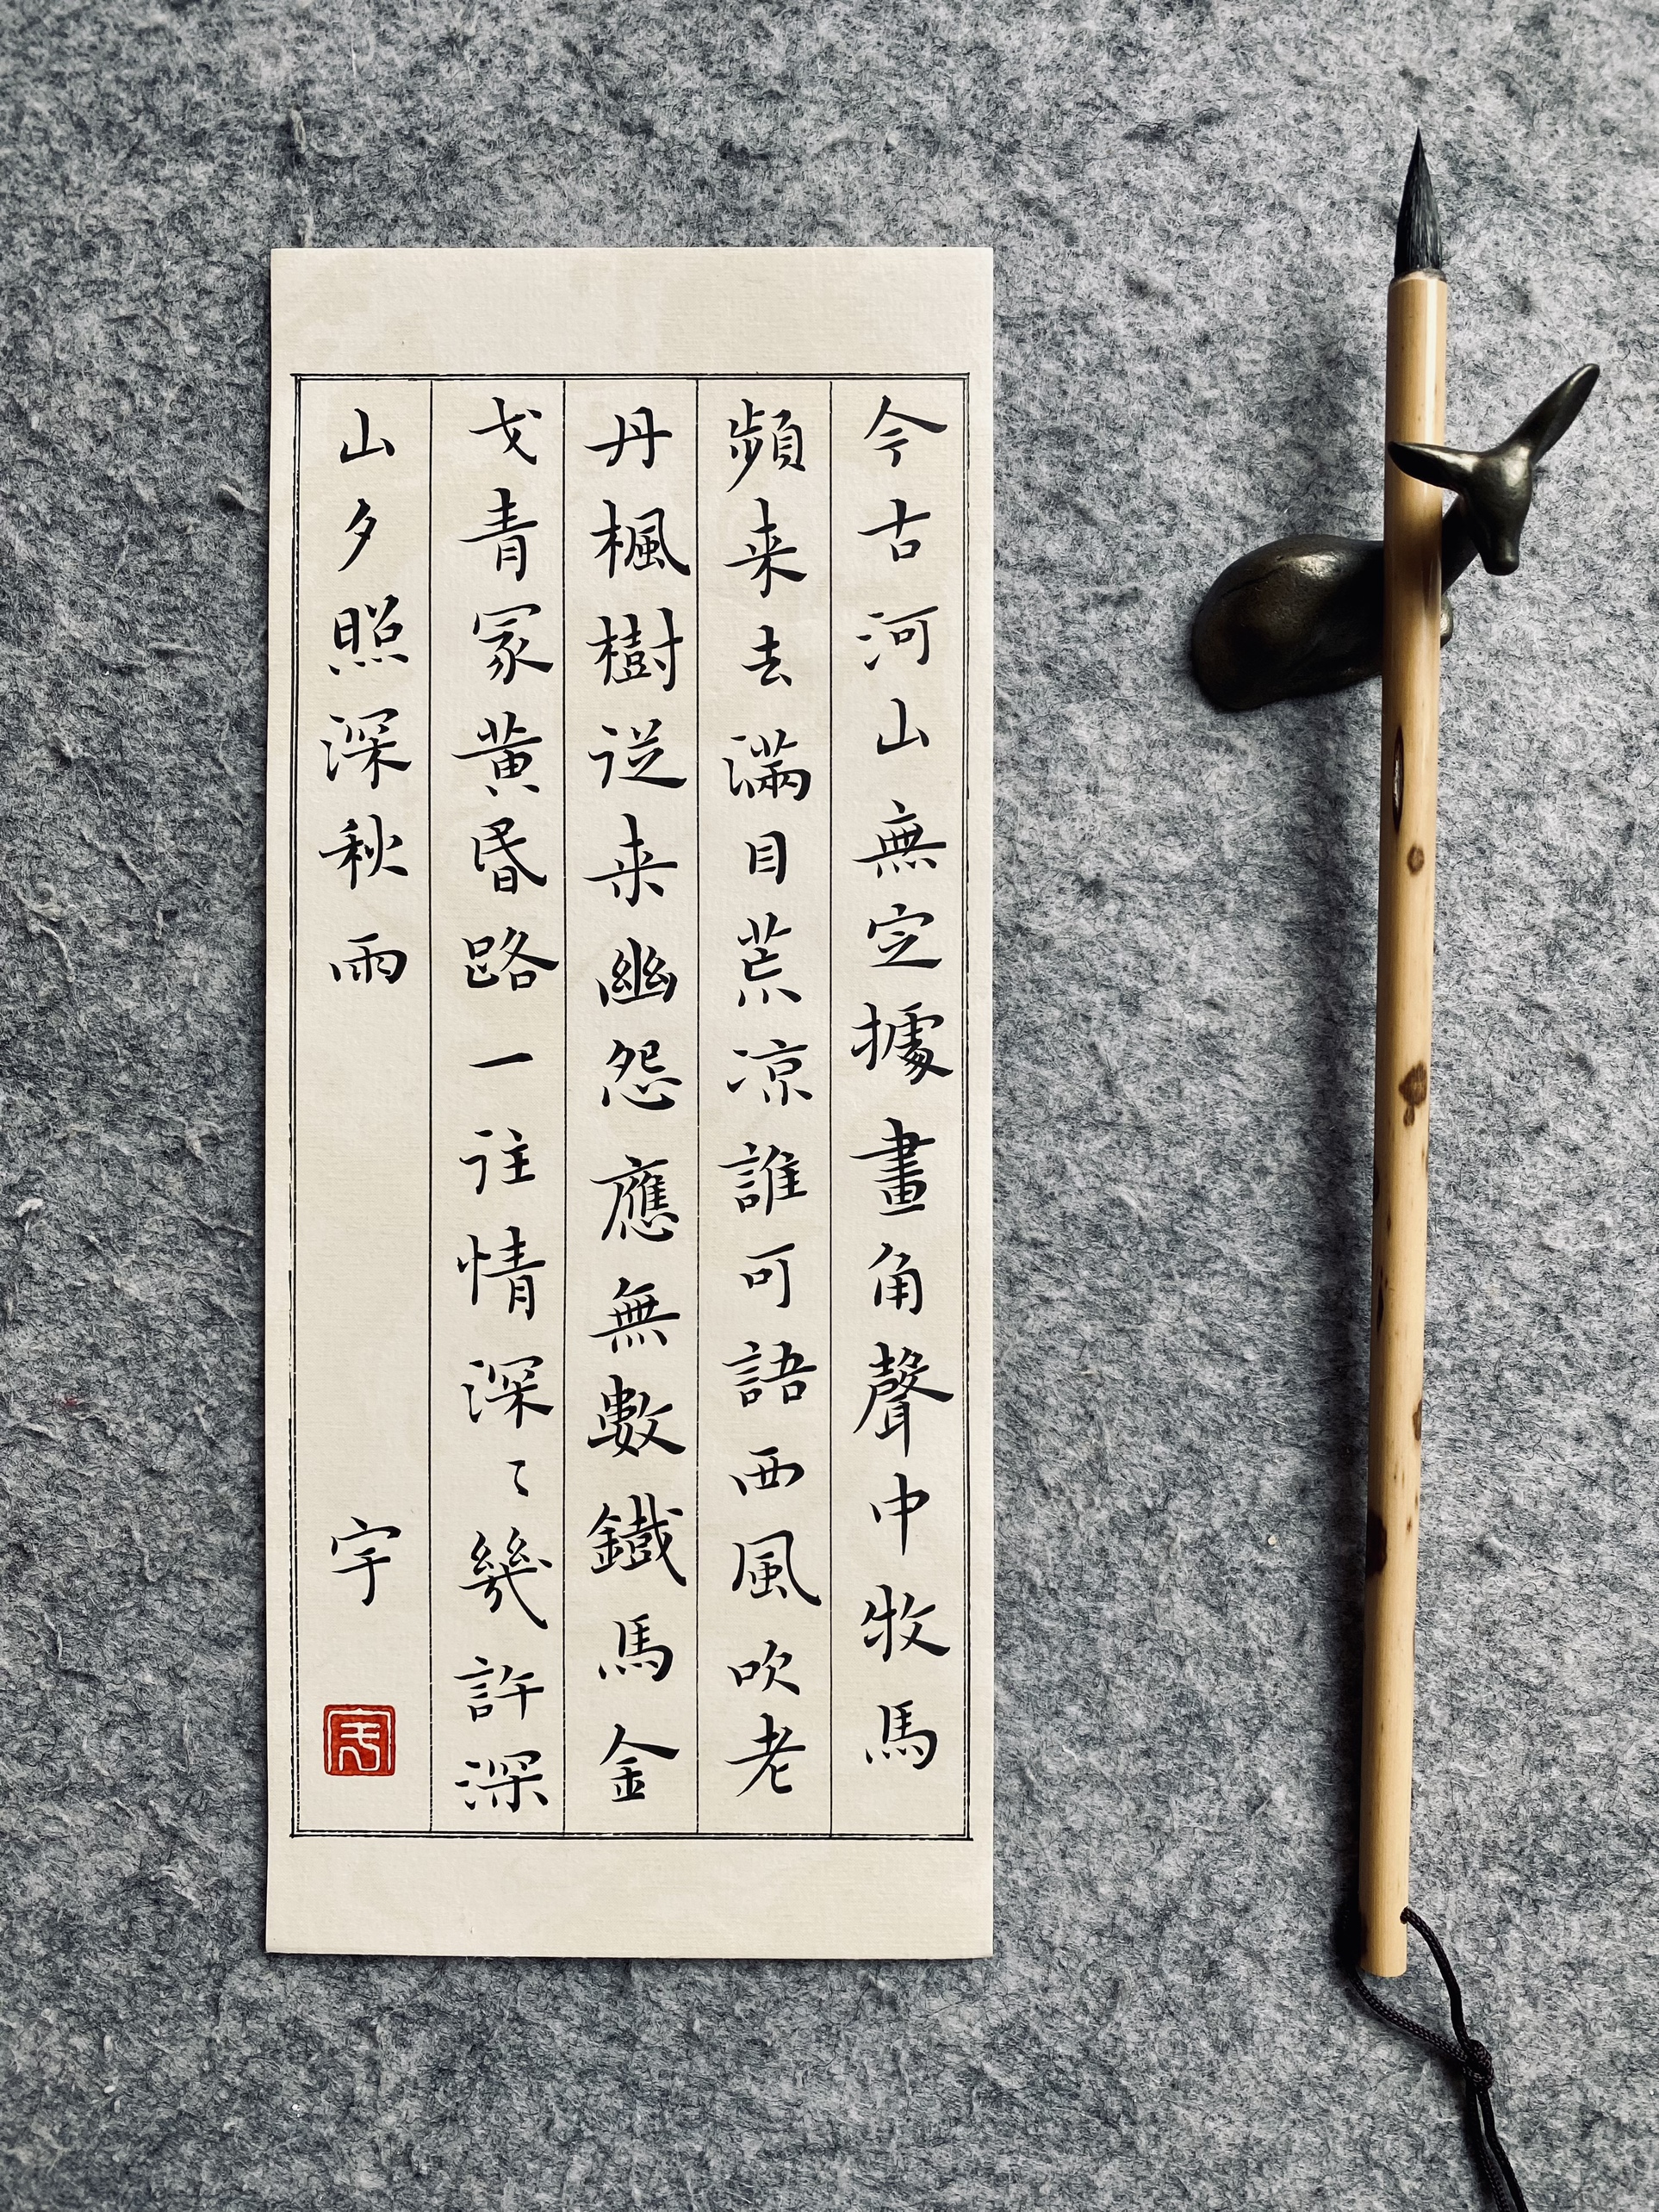 今古河山無定據畫角聲中牧馬
頻来去滿目荒凉誰可語西風吹老
丹楓樹從来幽怨應無數鐵馬金
戈青冢黃昏路一往情深〻幾許深
山夕照深秋雨
宇